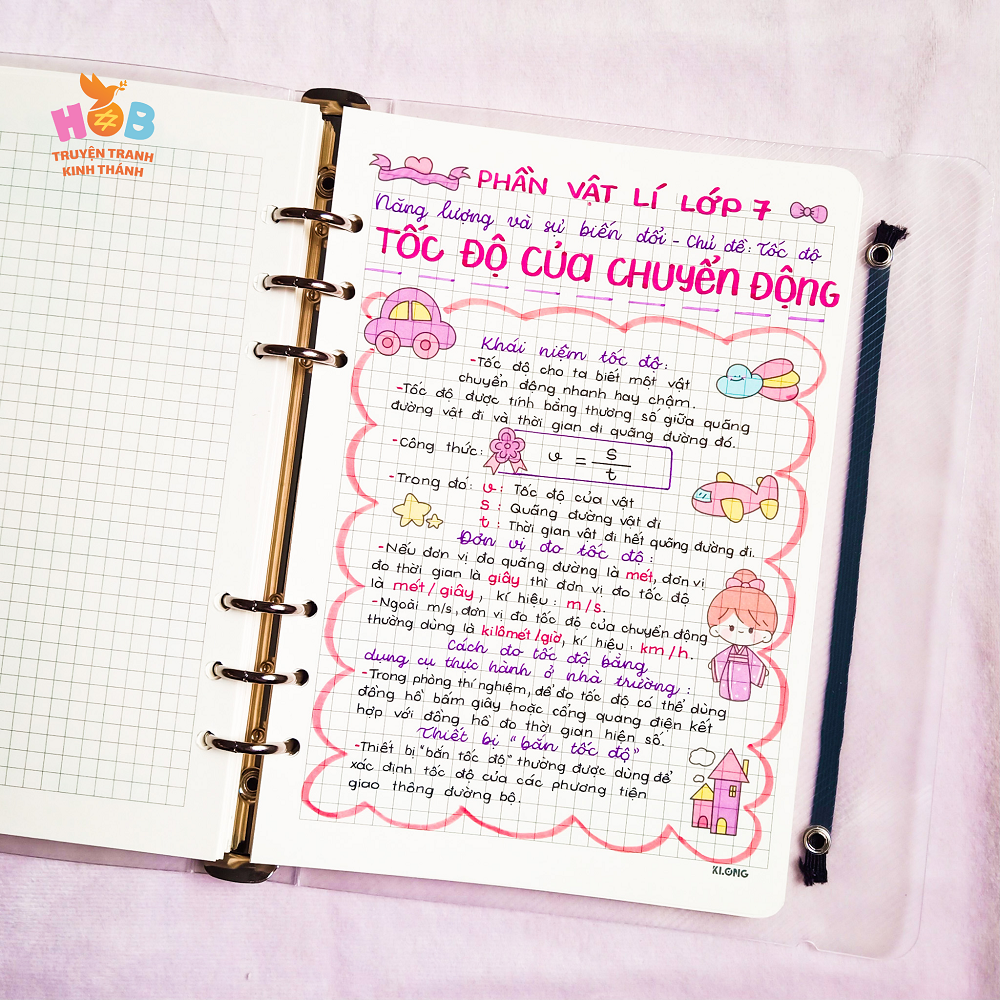 HOB
TRUYỆN TRANH
KINH THÁNH
PHẦN VẬT LÍ LỚP 7
Năng lượng và sự biến đổi - Chủ đề: Tốc độ
TỐC ĐỘ CỦA CHUYỂN ĐỘNG
Khái niệm tốc độ:
-Tốc độ cho ta biết một vật
chuyển động nhanh hay chậm.
-Tốc độ được tính bằng thương số giữa quãng
đường vật đi và thời gian đi quãng đường đó.
-Công thức: v = s/t
-Trong đó: v: Tốc độ của vật
s: Quãng đường vật đi
t: Thời gian vật đi hết quãng đường đi.
Đơn vị đo tốc độ:
-Nếu đơn vị đo quãng đường là mét, đơn vị
đo thời gian là giây thì đơn vị đo tốc độ
là mét/giây, kí hiệu: m/s.
-Ngoài m/s, đơn vị đo tốc độ của chuyển động
thường dùng là kilômét/giờ, kí hiệu: km/h.
Cách đo tốc độ bằng
dụng cụ thực hành ở nhà trường:
-Trong phòng thí nghiệm, để đo tốc độ có thể dùng
đồng hồ bấm giây hoặc cổng quang điện kết
hợp với đồng hồ đo thời gian hiện số.
Thiết bị "bắn tốc độ"
-Thiết bị "bắn tốc độ" thường được dùng để
xác định tốc độ của các phương tiện
giao thông đường bộ.
KLONG